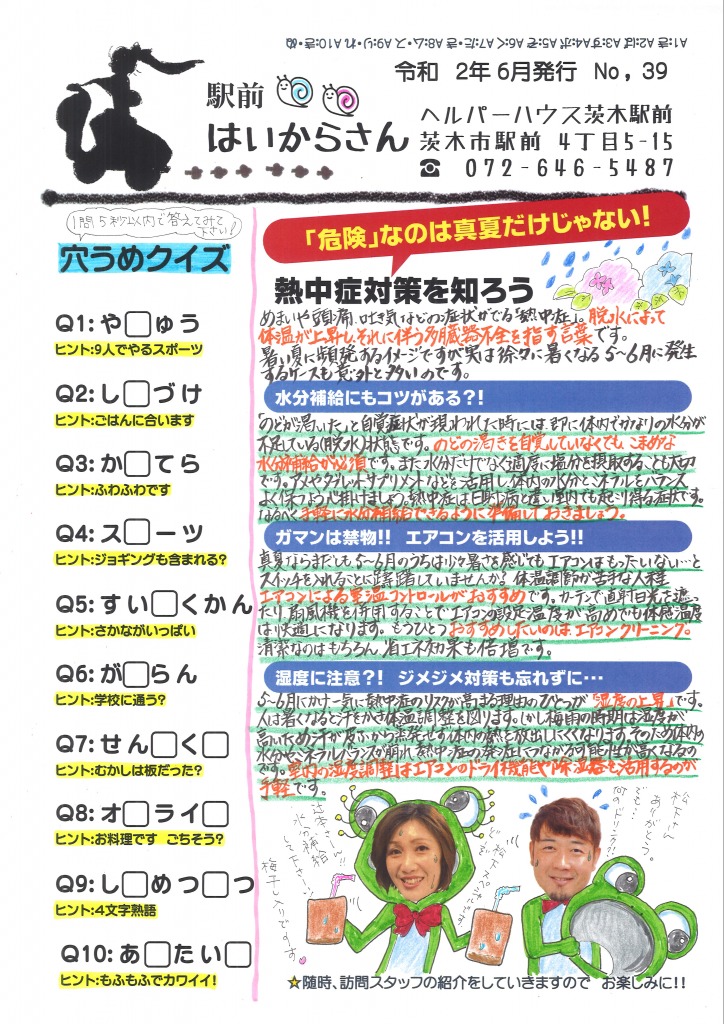 A1:き A2:ば A3:す A4:ポ A5:ぞ A6:く A7:た・き A8:ム・ス A9:り・れ A10:き・ぬ
令和 2年6月発行 No，39
駅前
はいからさん
ヘルパーハウス茨木駅前
茨木市駅前 4丁目5-15
☎ 072-646-5487
1問5秒以内で答えてみて
下さい!
穴うめクイズ
Q1:や□ゅう
ヒント:9人でやるスポーツ
Q2:し□づけ
ヒント:ごはんに合います
Q3:か□てら
ヒント:ふわふわです
Q4:ス□ーツ
ヒント:ジョギングも含まれる?
Q5:すい□くかん
ヒント:さかながいっぱい
Q6:が□らん
ヒント:学校に通う?
Q7:せん□く□
ヒント:むかしは板だった?
Q8:オ□ライ□
ヒント:お料理です ごちそう?
Q9:し□めつ□つ
ヒント:4文字熟語
Q10:あ□たい□
ヒント:もふもふでカワイイ!
「危険」なのは真夏だけじゃない!
熱中症対策を知ろう
めまいや頭痛、吐き気などの症状がでる「熱中症」。脱水によって
体温が上昇し、それに伴う多臓器不全を指す言葉です。
暑い夏に頻発するイメージですが実は徐々に暑くなる5~6月に発生
するケースも意外と多いのです。
水分補給にもコツがある?!
「のどが渇いた」と自覚症状が現われた時には、即に体内でかなりの水分が
不足している(脱水)状態です。のどの渇きを自覚していなくても、こまめな
水分補給が必須です。また水分だけでなく適度に塩分を摂取することも大切
です。アメやタブレット、サプリメントなどを活用し、体内の水分とミネラルをバランス
よく保つよう心掛けましょう。熱中症は日射病と違い、室内でも起こり得る症状です。
なるべく手軽に水分補給できるように準備しておきましょう。
ガマンは禁物!! エアコンを活用しよう!!
真夏ならまだしも5~6月のうちは少々暑さを感じてもエアコンはもったいない…と
スイッチを入れることに躊躇していませんか?体温調節が苦手な人種
エアコンによる室温コントロールがおすすめです。カーテンで直射日光を遮っ
たり、扇風機を併用することでエアコンの設定温度が高めでも体感温度
は快適になります。もうひとつおすすめしたいのは、エアコンクリーニング。
清潔なのはもちろん、省エネ効果も倍増です。
湿度に注意?! ジメジメ対策も忘れずに…
5~6月にかけ一気に熱中症のリスクが高まる理由のひとつが「湿度の上昇」です。
人は暑くなると汗をかき体温調整を図ります。しかし梅雨の時期は湿度が
高いため汗が皮ふから蒸発せず体内の熱を放出しにくくなります。そのため体内の
水分やミネラルバランスが崩れ、熱中症の発症につながる可能性が高くなるの
です。室内の湿度調整はエアコンのドライ機能や除湿器を活用するのが
手軽です。
辻本さーん!!
水分補給
して下さーい!!
梅干し入りでーす♥
松下スペシャルです
どーぞ
松下さん
ありがとう。
でも…
何のドリンク?!
★随時、訪問スタッフの紹介をしていきますので お楽しみに!!